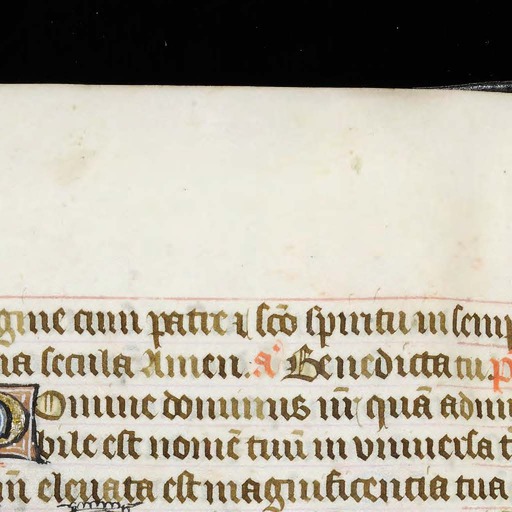 gine cum patre ⁊ sc̄o spiritu in semp
na secula Amen. a᷒ Benedicta tu. p
Domine dominus nr̄ quā admi
bile est nomē tuū in vniuersa t
m̄ eleuata est magnificencia tua